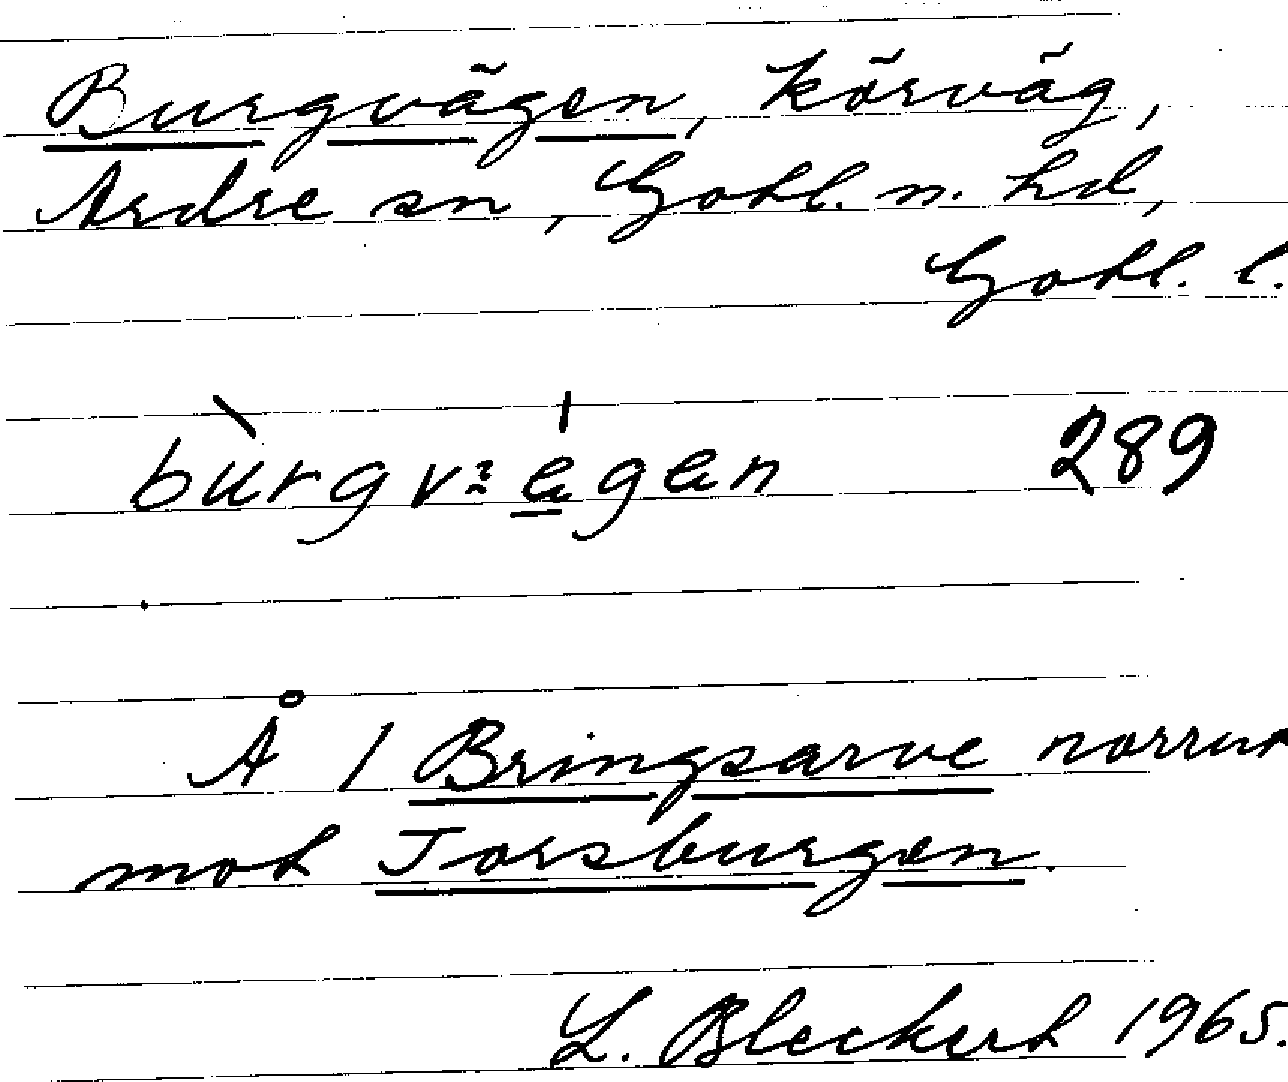 Burgvägen, körväg,
Ardre sn, Gotl. n. hd,
Gotl. l.
bùrgvägän 289
Å 1 Bringsarve norrut
mot Torsburgen.
L. Bleckert 1965.